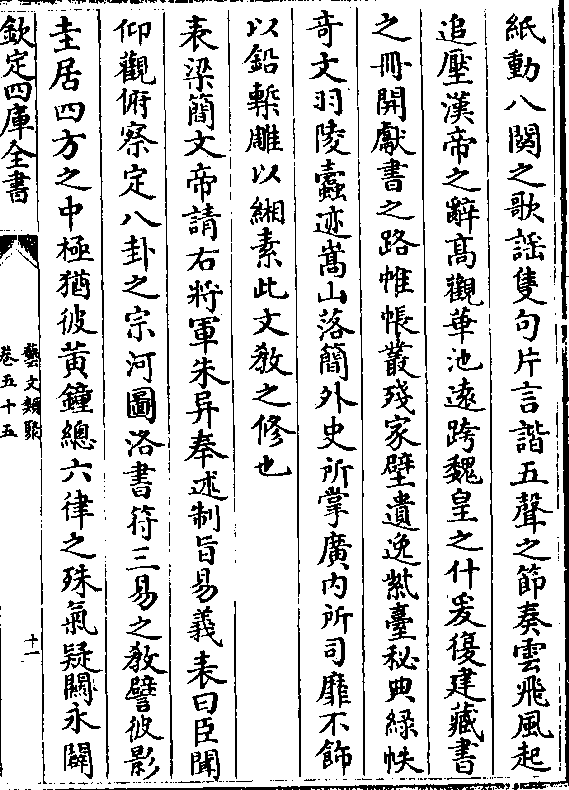 紙動八闋之歌謡隻句片言諧五聲之節奏雲飛風起
追壓漢帝之辭髙觀華池遠跨魏皇之什爰復建藏書
之冊開獻書之路帷帳叢殘家壁遺逸紫臺秘典緑帙
竒文羽陵蠧迹嵩山落簡外史所掌廣内所司靡不飾
以鉛槧雕以緗素此文敎之修也
表梁簡文帝請右將軍朱异奉述制旨易義表曰臣聞
仰觀俯察定八卦之宗河圖洛書符三易之敎譬彼影
圭居四方之中極猶彼黄鐘總六律之殊氣疑關永闢
欽定四庫全書
藝文類聚
卷五十五
十一